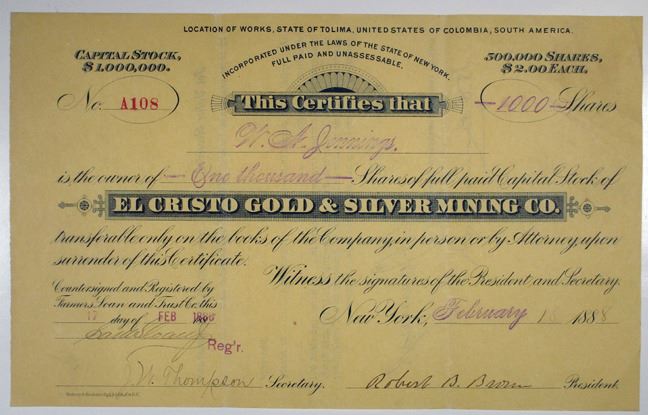 LOCATION OF WORKS, STATE OF TOLIMA, UNITED STATES OF COLOMBIA, SOUTH AMERICA.
INCORPORATED UNDER THE LAWS OF THE STATE OF NEW YORK.
FULL PAID AND UNASSESSABLE.
CAPITAL STOCK,
$1,000,000.
500,000 SHARES,
$2.00 EACH.
No. A108
This Certifies that
—1000— Shares
W. A. Jennings.
is the owner of — One thousand — Shares of full paid Capital Stock of
EL CRISTO GOLD & SILVER MINING CO.
transferable only on the books of the Company, in person or by Attorney, upon
surrender of this Certificate.
Witness the signatures of the President and Secretary.
Countersigned and Registered by
Farmers Loan and Trust Co. this
17 day of FEB 188
Reg'r.
New York, February 1888
W. Thompson Secretary.
Robert B. Brown President.